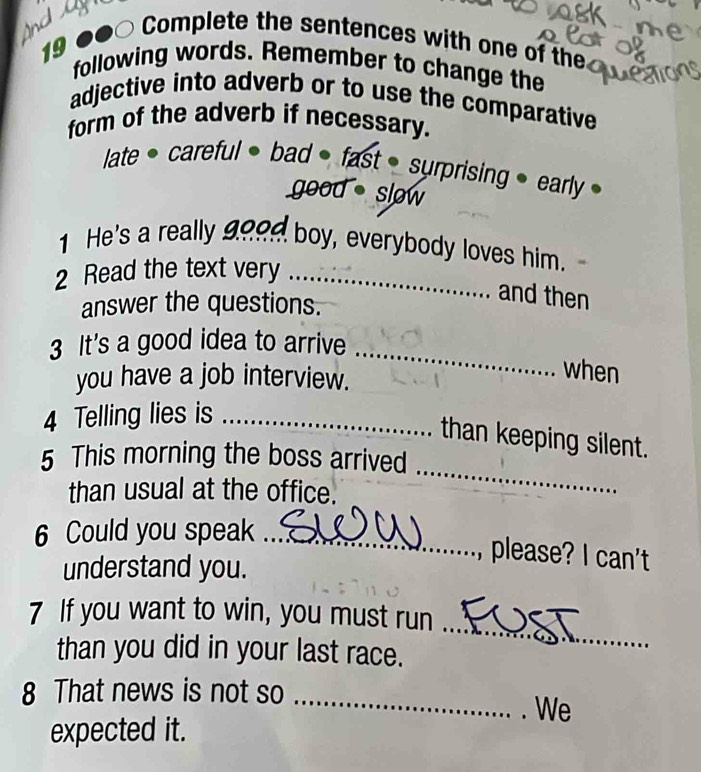 And
to ask me
a lot of
questions
19 Complete the sentences with one of the
following words. Remember to change the
adjective into adverb or to use the comparative
form of the adverb if necessary.
late • careful • bad • fast • surprising • early •
good • slow
1 He's a really good boy, everybody loves him.
2 Read the text very .......... and then
answer the questions.
3 It's a good idea to arrive .......... when
you have a job interview.
4 Telling lies is .......... than keeping silent.
5 This morning the boss arrived ..........
than usual at the office.
6 Could you speak SLOW, please? I can't
understand you.
7 If you want to win, you must run FUST
than you did in your last race.
8 That news is not so .......... . We
expected it.